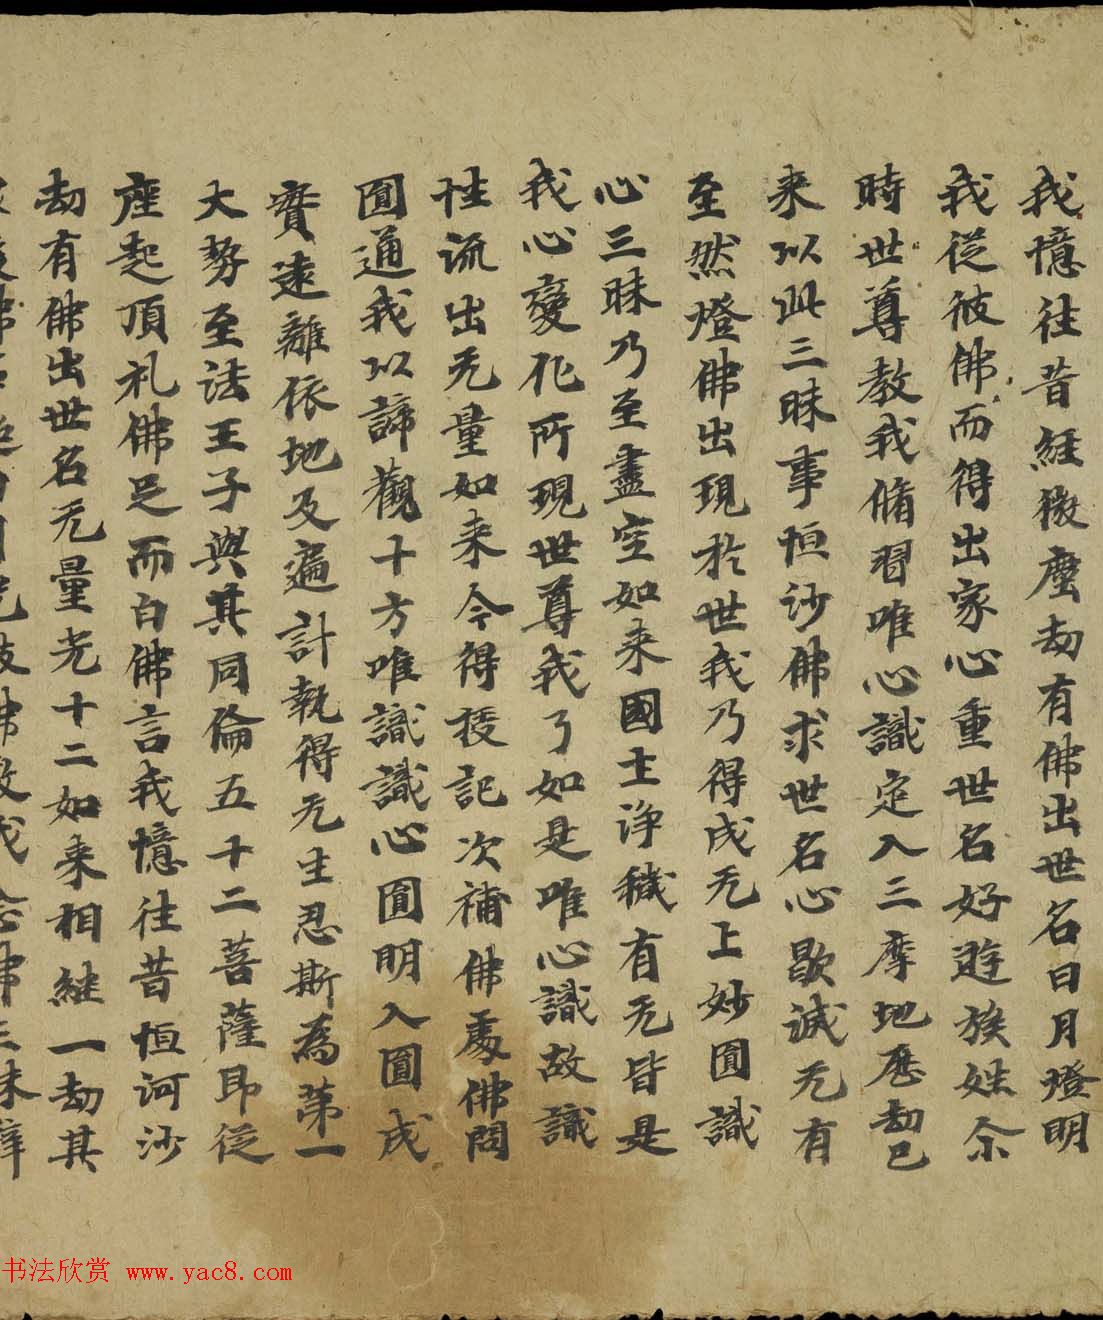 我憶往昔經微塵劫有佛出世名日月燈明
我從彼佛而得出家心重世名好遊族姓尒
時世尊教我脩習唯心識定入三摩地歷劫已
来以此三昧事恒沙佛求世名心歇滅无有
至然燈佛出現於世我乃得成无上妙圓識
心三昧乃至盡空如来國土淨穢有无皆是
我心變化所現世尊我了如是唯心識故識
性流出无量如来今得授記次補佛處佛問
圓通我以諦觀十方唯識識心圓明入圓成
實遠離依地及遍計執得无生忍斯為第一
大勢至法王子與其同倫五十二菩薩即從
座起頂礼佛足而白佛言我憶往昔恒河沙
劫有佛出世名无量光十二如来相継一劫其
书法欣赏 www.yac8.com